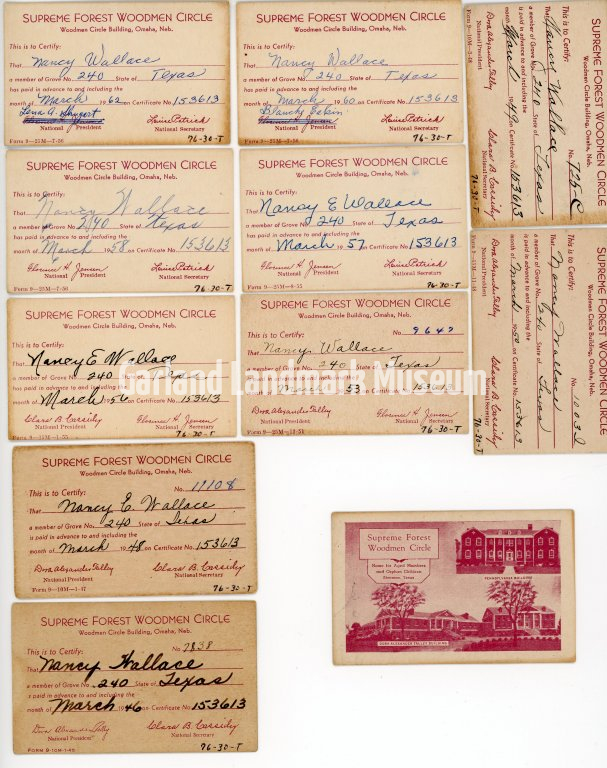 SUPREME FOREST WOODMEN CIRCLE
Woodmen Circle Building, Omaha, Neb.
This is to Certify:
That Nancy Wallace
a member of Grove No. 240 State of Texas
has paid in advance to and including the
month of March 1962 on Certificate No. 153613
Lena A.
National President
Louise Patrick
National Secretary
Form 9—25M—7-56
76-30-T
SUPREME FOREST WOODMEN CIRCLE
Woodmen Circle Building, Omaha, Neb.
This is to Certify:
That Nancy Wallace
a member of Grove No. 240 State of Texas
has paid in advance to and including the
month of March 1960 on Certificate No. 153613
National President
Louise Patrick
National Secretary
Form 9—25M—7-56
76-30-T
SUPREME FOREST WOODMEN CIRCLE
Woodmen Circle Building, Omaha, Neb.
This is to Certify:
No.
That Nancy Wallace
a member of Grove No. 240 State of Texas
is paid in advance to and including the
month of March Certificate No. 153613
Dora Alexander Talley
National President
Clara B. Cassidy
National Secretary
76-30-T
SUPREME FOREST WOODMEN CIRCLE
Woodmen Circle Building, Omaha, Neb.
This is to Certify:
That Nancy Wallace
a member of Grove No. 240 State of Texas
has paid in advance to and including the
month of March 1958 on Certificate No. 153613
Florence H. Jensen
National President
Louise Patrick
National Secretary
Form 9—25M—7-56
76-30-T
SUPREME FOREST WOODMEN CIRCLE
Woodmen Circle Building, Omaha, Neb.
This is to Certify:
That Nancy E Wallace
a member of Grove No. 240 State of Texas
has paid in advance to and including the
month of March 1957 on Certificate No. 153613
Florence H. Jensen
National President
Louise Patrick
National Secretary
Form 9—25M—8-55
76-30-T
SUPREME FOREST WOODMEN CIRCLE
Woodmen Circle Building, Omaha, Neb.
This is to Certify:
No.
That Nancy Wallace
a member of Grove No. 240 State of Texas
is paid in advance to and including the
month of March 1950 on Certificate No. 153613
Dora Alexander Talley
National President
Clara B. Cassidy
National Secretary
76-30-T
SUPREME FOREST WOODMEN CIRCLE
Woodmen Circle Building, Omaha, Neb.
This is to Certify:
Nancy E Wallace
a member of Grove No. 240 State of Texas
month of March 1956 on Certificate No. 153613
Clara B. Cassidy
National President
Florence H. Jensen
National Secretary
Form 9—25M—1-55
76-30-T
SUPREME FOREST WOODMEN CIRCLE
Woodmen Circle Building, Omaha, Neb.
This is to Certify:
No. 9647
That Nancy Wallace
240 State of Texas
March 1953 on Certificate No. 153613
Dora Alexander Talley
National President
Florence H. Jensen
National Secretary
76-30-T
Garland Landmark Museum
SUPREME FOREST WOODMEN CIRCLE
Woodmen Circle Building, Omaha, Neb.
This is to Certify:
No. 11108
That Nancy E. Wallace
a member of Grove No. 240 State of Texas
is paid in advance to and including the
month of March 1948 on Certificate No. 153613
Dora Alexander Talley
National President
Clara B. Cassidy
National Secretary
Form 9—10M—1-47
76-30-T
Supreme Forest
Woodmen Circle
Home for Aged Members
and Orphan Children
Sherman, Texas
PENNSYLVANIA BUILDING
DORA ALEXANDER TALLEY BUILDING
SUPREME FOREST WOODMEN CIRCLE
Woodmen Circle Building, Omaha, Neb.
This is to Certify:
No. 7838
That Nancy Wallace
a member of Grove No. 240 State of Texas
is paid in advance to and including the
month of March 1946 on Certificate No. 153613
Dora Alexander Talley
National President
Clara B. Cassidy
National Secretary
FORM 9-10M-1-45
76-30-T